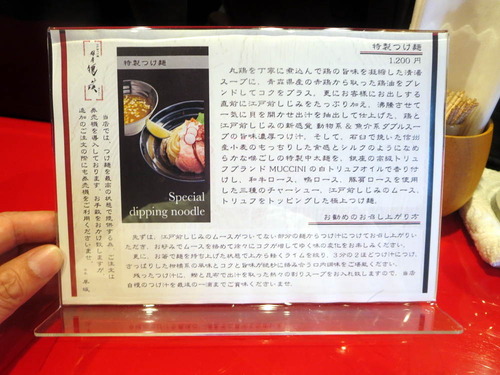 特製つけ麺
1,200 円
丸鶏を丁寧に煮込んで鶏の旨味を凝縮した清湯
スープに、青森県産の青鶏から取った鶏油をブレ
ンドしてコクをプラス。更にお客様にお出しする
直前に江戸前しじみをたっぷり加え、沸騰させて
一気に貝を開かせ出汁を抽出して仕上げた、鶏と
江戸前しじみの新感覚 動物系&魚介系ダブルスー
プの旨味濃厚つけ汁。そして、石臼で挽いた信州
産小麦のもっちりした食感とシルクのようになめ
らかな喉ごしの特製中太麺を、銀座の高級トリュ
フブランド MUCCINI の白トリュフオイルで香り付
けし、和牛ロース、鴨ロース、豚肩ロースを使用
した三種のチャーシュー、江戸前しじみのムース、
トリュフをトッピングした極上つけ麺。
お勧めのお召し上がり方
先ずは、江戸前しじみのムースがついてない部分の麺からつけ汁につけてお召し上がりい
ただき、お好みでムースを絡めて徐々にコクが増してゆく味の変化をお楽しみください。
更に、お箸で麺を持ち上げた状態で上から軽くライムを絞り、3分の2ほどつけ汁につけ、
さっぱりした柑橘系の酸味とコクと旨味が絶妙に絡み合う口内調味をご堪能ください。
残ったつけ汁に、鰹と昆布で出汁を取った熱々の割りスープをお入れ致しますので、当店
自慢のつけ汁を最後の一滴までご賞味くださいませ。
特製つけ麺
Special
dipping noodle
当店では、つけ麺を最高の状態で提供する為、ご注文は
券売機を導入しております。お手数をお掛け致しますが、
追加のご注文の際にも券売機をご利用くださいませ。